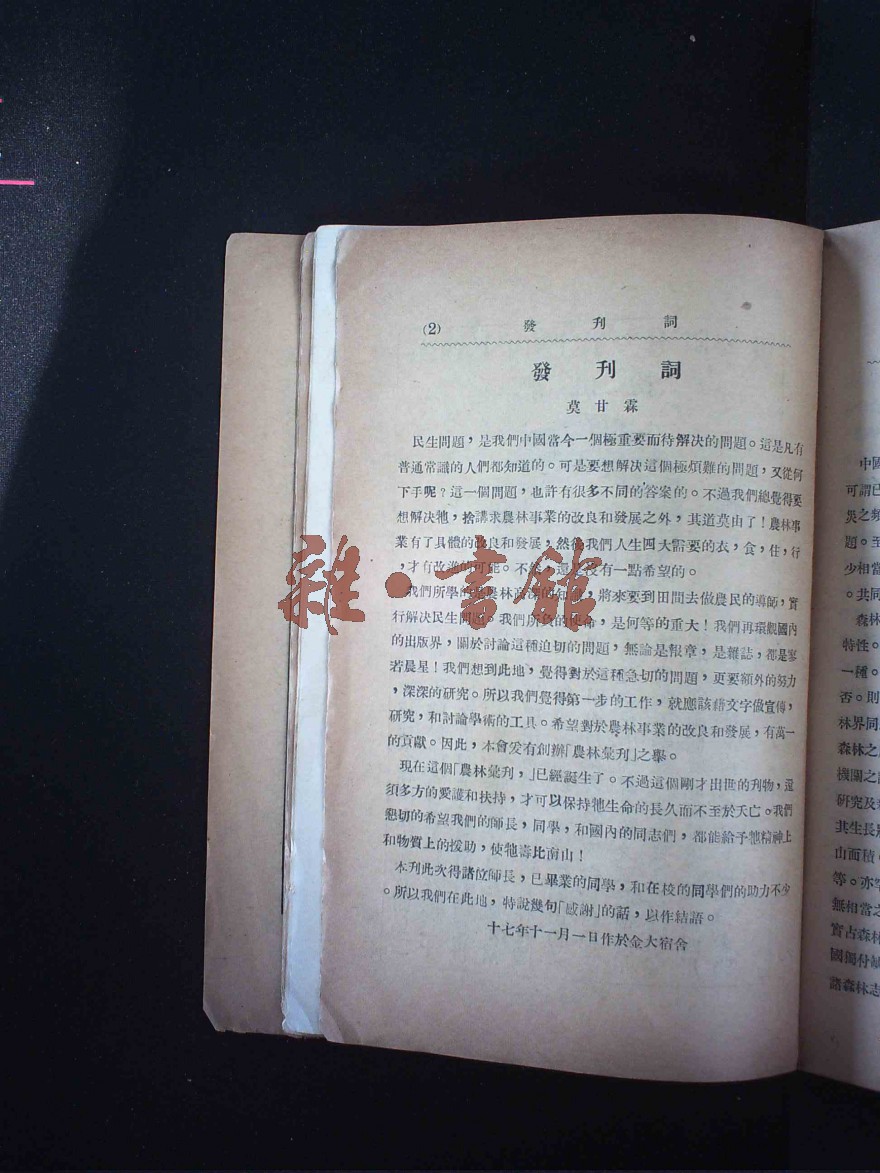 (2) 發刊詞
發刊詞
莫甘霖
民生問題，是我們中國當今一個極重要而待解決的問題。這是凡有
普通常識的人們都知道的。可是要想解決這個極煩難的問題，又從何
下手呢？這一個問題，也許有很多不同的答案的。不過我們總覺得要
想解決牠，捨講求農林事業的改良和發展之外，其道莫由了！農林事
業有了具體的改良和發展，然後我們人生四大需要的衣，食，住，行
，才有改進的可能。不然，還是沒有一點希望的。
我們所學的是農林高深的知識，將來要到田間去做農民的導師，實
行解決民生問題。我們所負的使命，是何等的重大！我們再環觀國內
的出版界，關於討論這種迫切的問題，無論是報章，是雜誌，都是寥
若晨星！我們想到此地，覺得對於這種急切的問題，更要額外的努力
，深深的研究。所以我們覺得第一步的工作，就應該藉文字做宣傳，
研究，和討論學術的工具。希望對於農林事業的改良和發展，有萬一
的貢獻。因此，本會爰有創辦「農林彙刋」之舉。
現在這個「農林彙刋，」已經誕生了。不過這個剛才出世的刋物，還
須多方的愛護和扶持，才可以保持牠生命的長久而不至於夭亡。我們
懇切的希望我們的師長，同學，和國內的同志們，都能給予牠精神上
和物質上的援助，使牠壽比南山！
本刋此次得諸位師長，已畢業的同學，和在校的同學們的助力不少
。所以我們在此地，特說幾句「感謝」的話，以作結語。
十七年十一月一日作於金大宿舍
雜·書館
中國
可謂已
災之頻
題。至
少相當
。共同
森林
特性。
一種。
否。則
林界同
森林之
機關之
研究及
其生長
山面積
等。亦
無相當之
實占森林
國偈付
諸森林志